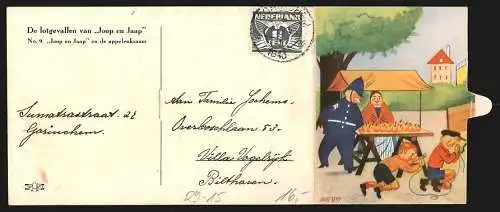 De lotgevallen van „Joop en Jaap"
No. 9. „Joop en Jaap" en de appelenkraam
Sumatrastraat 21
Gorinchem.
NEDERLAND
1943
Aan Familie Jochems.
Overboschlaan 53.
Villa Vogelrijk
Bilthoven.
29-15
16,-